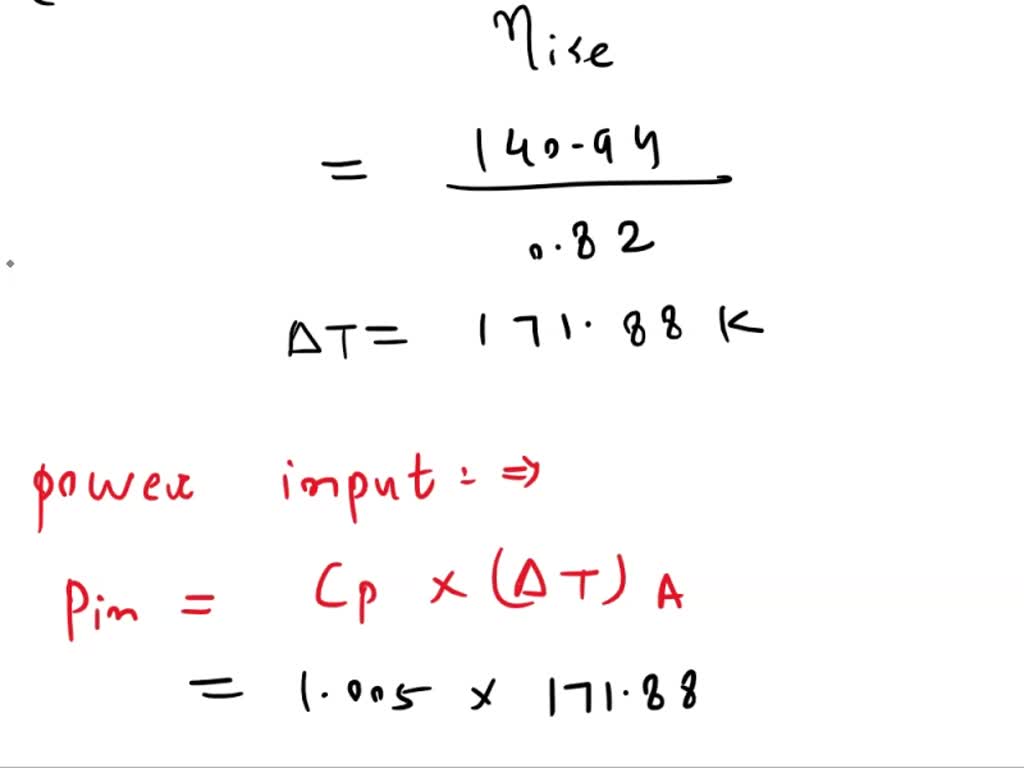 ηise
= 140.94
0.82
ΔT = 171.88 K
power input :⇒
Pin = Cp × (ΔT)A
= 1.005 × 171.88